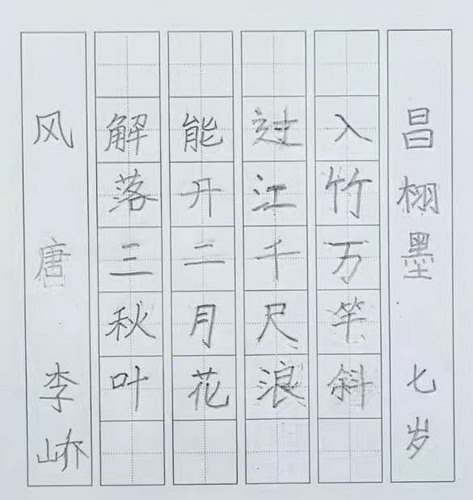 风 唐 李峤
解落三秋叶
能开二月花
过江千尺浪
入竹万竿斜
昌栩墨 七岁